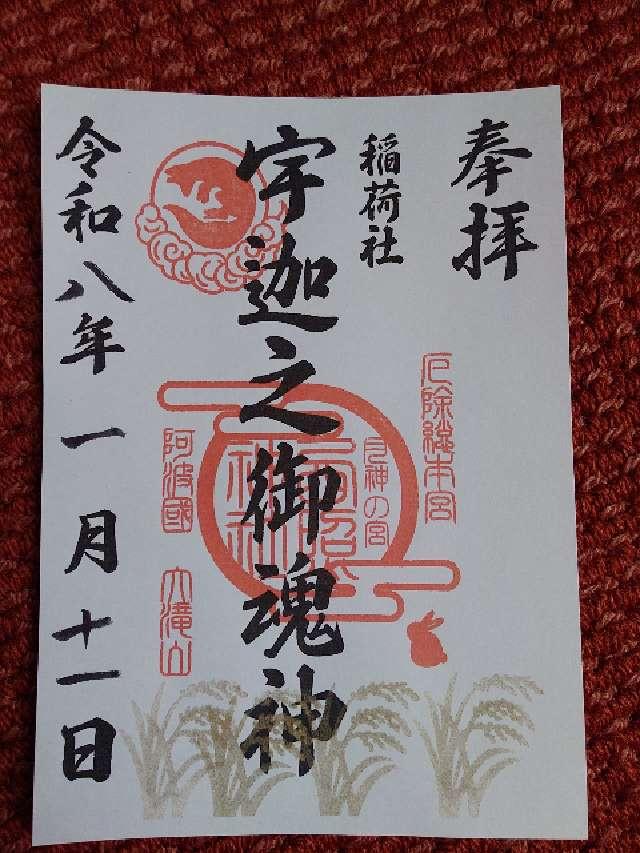 奉拝
稲荷社
厄除總本宮
月神の宮
宇迦之御魂神
神社
阿波國
大滝山
令和八年一月十一日